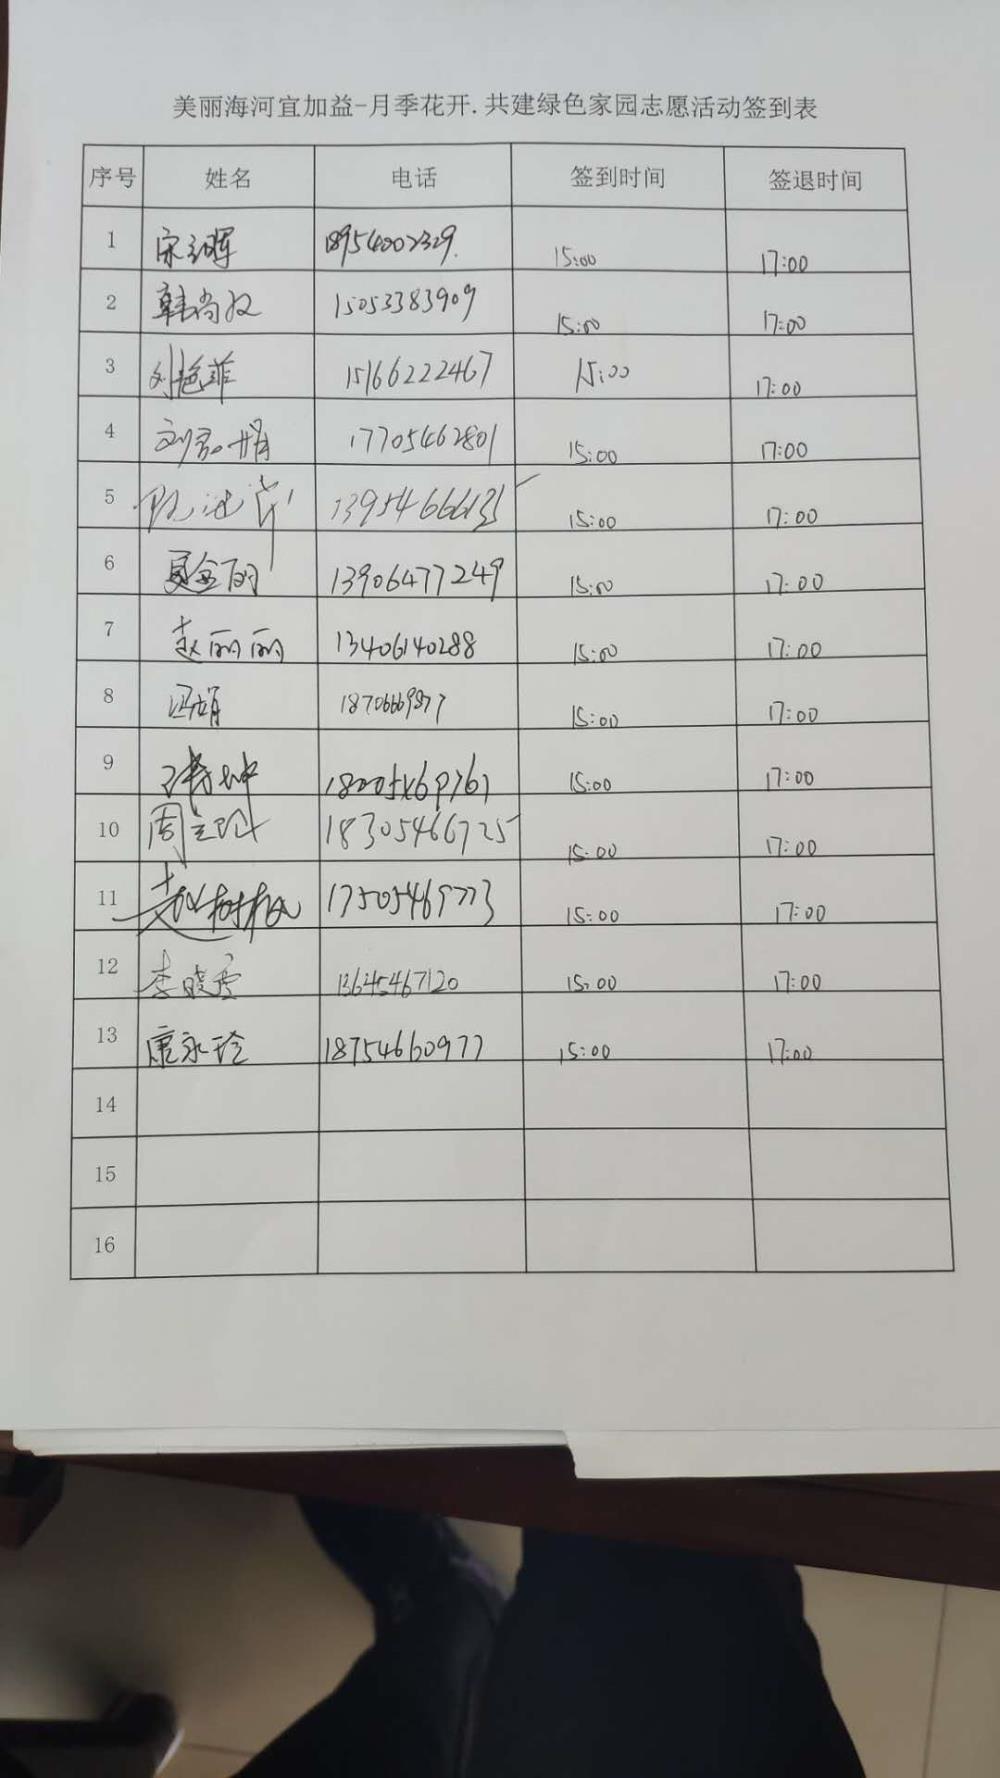 美丽海河宜加益-月季花开.共建绿色家园志愿活动签到表
序号 姓名 电话 签到时间 签退时间
1 18954002329. 15:00 17:00
2 15053383909 15:00 17:00
3 刘艳菲 15166222467 15:00 17:00
4 17705462801 15:00 17:00
5 15:00 17:00
6 13906477249 15:00 17:00
7 赵丽丽 13406140288 15:00 17:00
8 冯娟 15:00 17:00
9 15:00 17:00
10 18305466725 15:00 17:00
11 15:00 17:00
12 13645467120 15:00 17:00
13 康永玲 18754660977 15:00 17:00
14
15
16